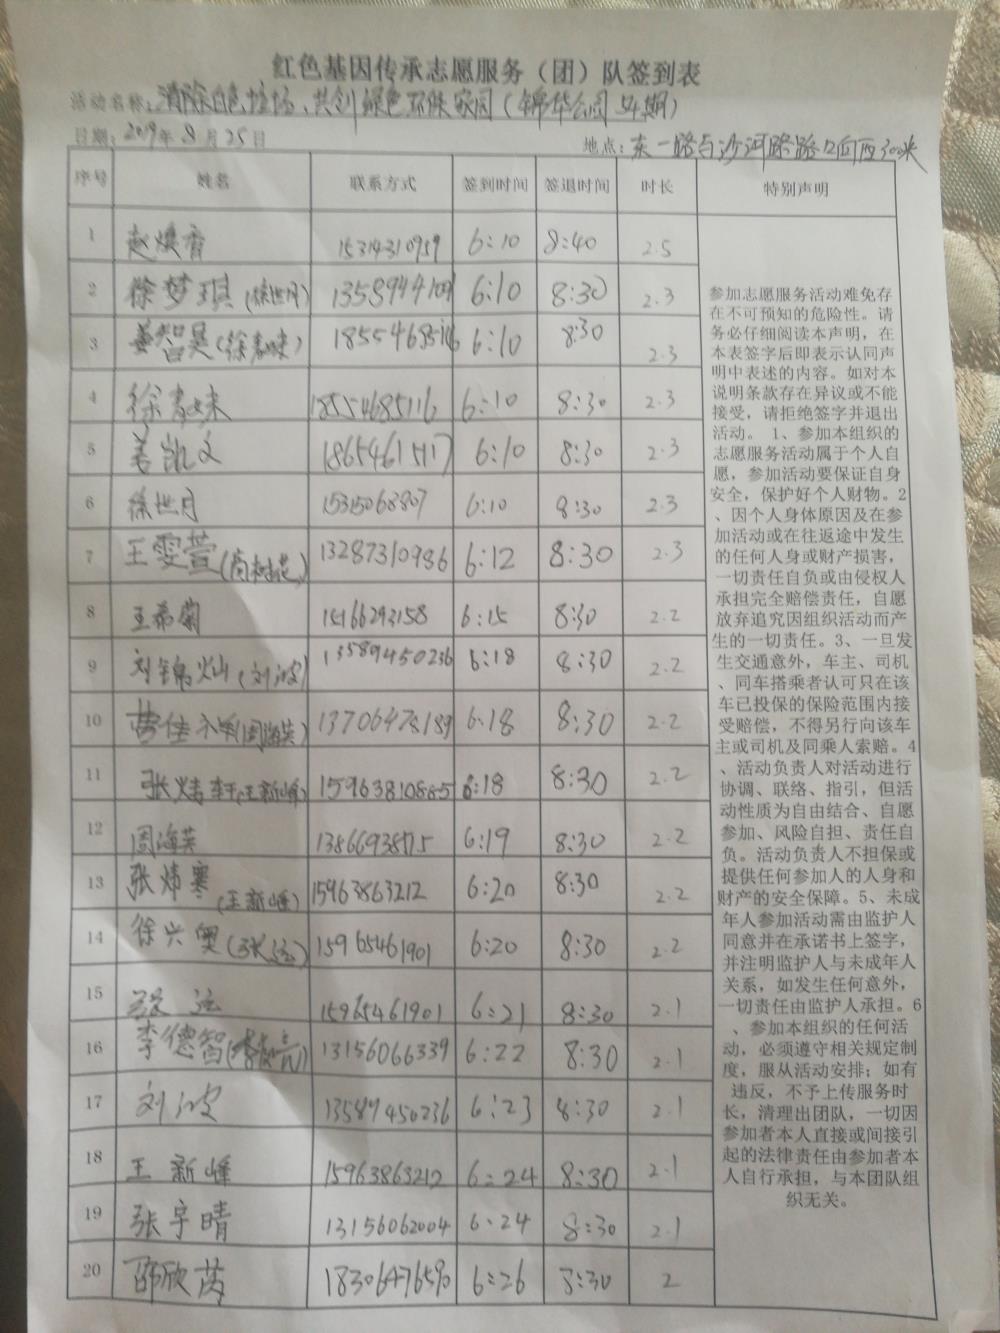 红色基因传承志愿服务（团）队签到表
活动名称：清除白色垃圾、共创绿色环保家园（锦华公园 期）
日期：2019年8月25日 地点：东一路与沙河路路口向西300米
序号 姓名 联系方式 签到时间 签退时间 时长 特别声明
1 赵焕香 15314310959 6:10 8:40 2.5
2 徐梦琪（徐世月） 6:10 8:30 2.3
3 姜智昊 18554685116 6:10 8:30 2.3
4 18554685116 6:10 8:30 2.3
5 姜凯文 18654615117 6:10 8:30 2.3
6 徐世月 15315068807 6:10 8:30 2.3
7 王雯萱 13287310986 6:12 8:30 2.3
8 王希菊 15166293158 6:15 8:30 2.2
9 刘锦灿（刘波） 13589450236 6:18 8:30 2.2
10 （周海英） 13706478189 6:18 8:30 2.2
11 张炜轩（王新峰） 6:18 8:30 2.2
12 周海英 6:19 8:30 2.2
13 张炜寒（王新峰） 15963863212 6:20 8:30 2.2
14 徐兴奥 15965461901 6:20 8:30 2.2
15 15965461901 6:21 8:30 2.1
16 李德智 13156066339 6:22 8:30 2.1
17 刘波 13589450236 6:23 8:30 2.1
18 王新峰 15963863212 6:24 8:30 2.1
19 张宇晴 13156062004 6:24 8:30 2.1
20 邵欣芮 18306476590 6:26 8:30 2
参加志愿服务活动难免存
在不可预知的危险性。请
务必仔细阅读本声明，在
本表签字后即表示认同声
明中表述的内容。如对本
说明条款存在异议或不能
接受，请拒绝签字并退出
活动。 1、参加本组织的
志愿服务活动属于个人自
愿，参加活动要保证自身
安全，保护好个人财物。2
、因个人身体原因及在参
加活动或在往返途中发生
的任何人身或财产损害，
一切责任自负或由侵权人
承担完全赔偿责任，自愿
放弃追究因组织活动而产
生的一切责任。3、一旦发
生交通意外，车主、司机
、同车搭乘者认可只在该
车已投保的保险范围内接
受赔偿，不得另行向该车
主或司机及同乘人索赔。4
、活动负责人对活动进行
协调、联络、指引，但活
动性质为自由结合、自愿
参加、风险自担、责任自
负。活动负责人不担保或
提供任何参加人的人身和
财产的安全保障。5、未成
年人参加活动需由监护人
同意并在承诺书上签字，
并注明监护人与未成年人
关系，如发生任何意外，
一切责任由监护人承担。6
、参加本组织的任何活
动，必须遵守相关规定制
度，服从活动安排；如有
违反，不予上传服务时
长，清理出团队，一切因
参加者本人直接或间接引
起的法律责任由参加者本
人自行承担，与本团队组
织无关。